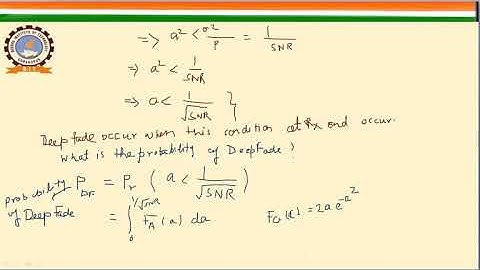 => a² < σ²/P = 1/SNR
=> a² < 1/SNR
=> a < 1/√SNR }
Deep Fade occur when this condition at Rx end occur.
What is the probability of Deep Fade?
probability of Deep Fade P_DF = Pr (a < 1/√SNR)
= ∫₀^{1/√SNR} F_A(a) da F_a(a) = 2a e^{-a²}